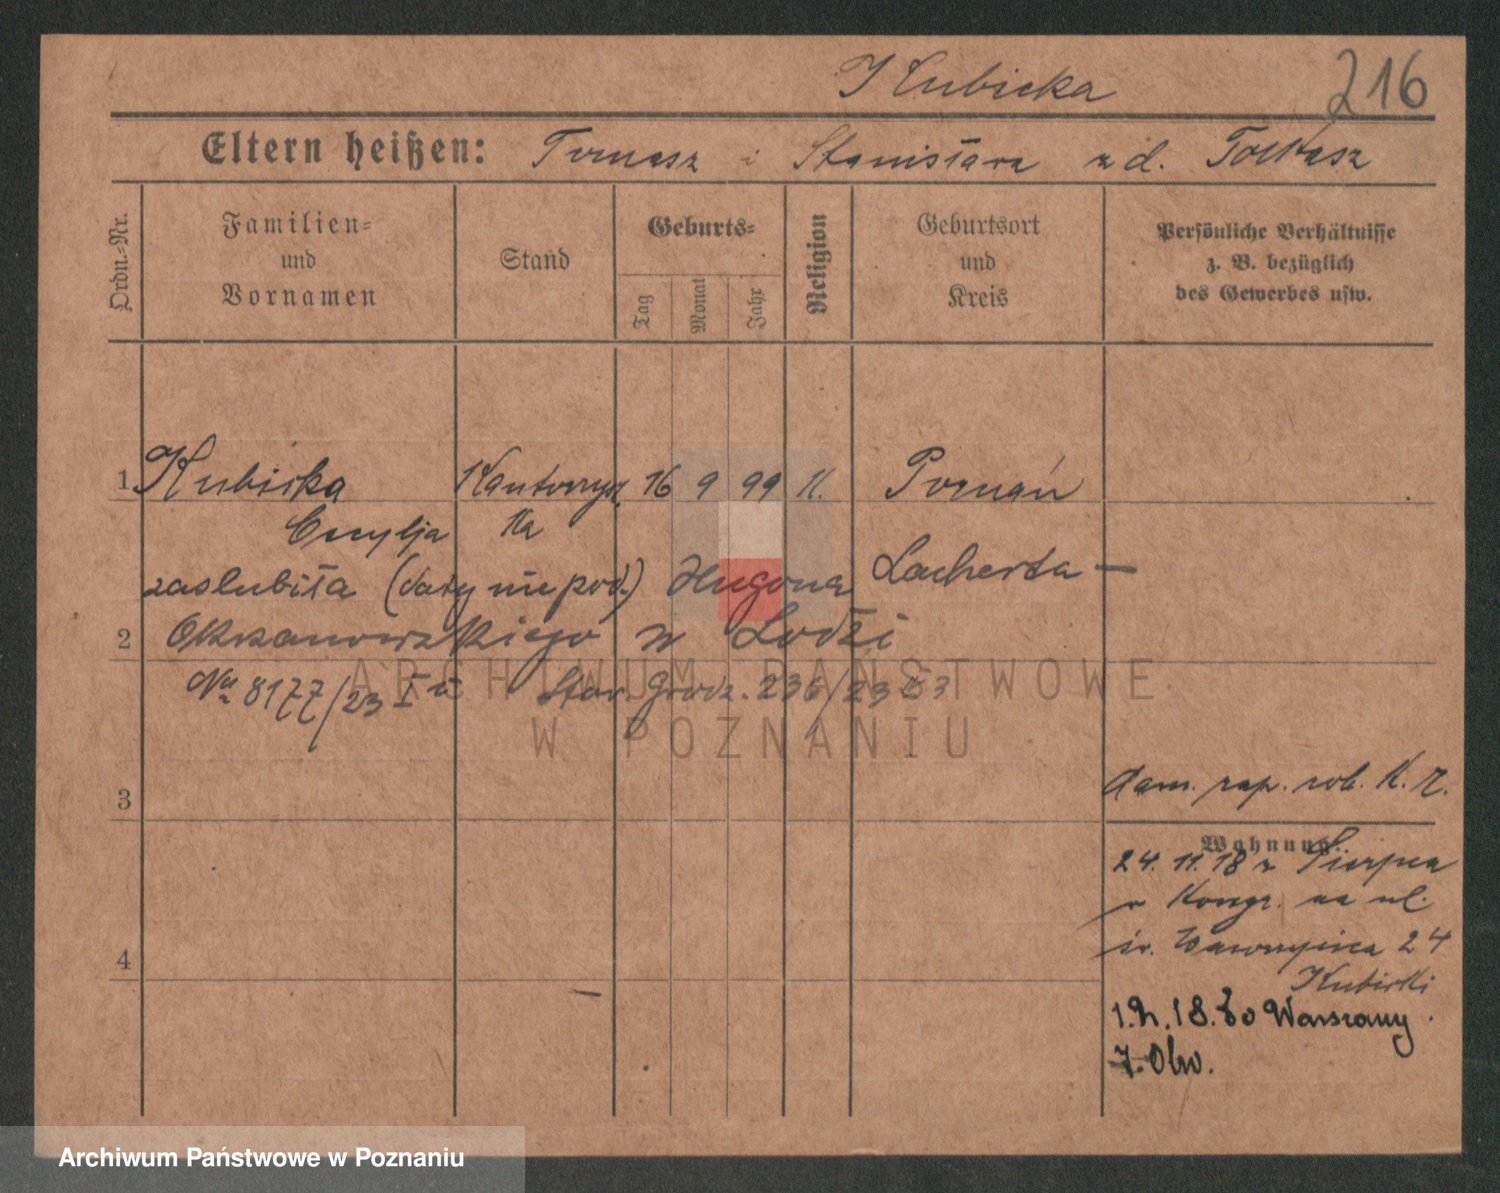 Kubicka 216
Eltern heißen: Tomasz i Stanisława z d.
Ordn.-Nr.
Familien- und Vornamen
Stand
Geburts-
Tag
Monat
Jahr
Religion
Geburtsort und Kreis
Persönliche Verhältnisse z. B. bezüglich des Gewerbes usw.
1 Kubicka Kantorzyst 16 9 99 K. Poznań
Cecylja ka
zaslubiła (daty nie pod.) Hugona Lacherta —
2 Okszanowskiego w Łodzi
No 8177/23 I Star. Grodz. 236/23
ARCHIWUM PAŃSTWOWE
W POZNANIU
3 zap. rob. K. R.
Wohnung:
24. 11. 18 z Sierpca
w Kongr. na ul.
św. Wawrzyńca 24
4 Kubicki
18. do Warszawy.
7. Obw.
Archiwum Państwowe w Poznaniu